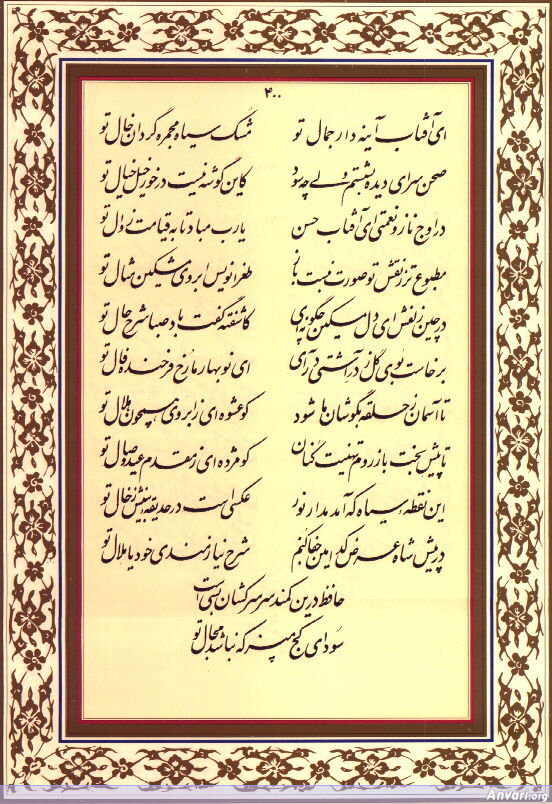 ۴۰۰
ای آفتاب آینه دار جمال تو مشک سیاه مجمره گردان خال تو
صحن سرای دیده بشستم ولی چه سود کاین گوشه نیست در خور خیل خیال تو
در اوج ناز و نعمتی ای آفتاب حسن یارب مباد تا به قیامت زوال تو
مطبوع تر ز نقش تو صورت نبست باز طغرا نویس ابروی مشکین مثال تو
در چین زلفش ای دل مسکین چگونه‌ای کاشفته گفت باد صبا شرح حال تو
برخاست بوی گل ز در آشتی درآی ای نوبهار ما رخ فرخنده فال تو
تا آسمان ز حلقه بگوشان ما شود کو عشوه‌ای ز ابروی همچون هلال تو
تا پیش بخت باز روم تهنیت کنان کو مژده‌ای ز مقدم عید وصال تو
این نقطه سیاه که آمد مدار نور عکسی است در حدیقه بینش ز خال تو
در پیش شاه عرض کدامین جفا کنم شرح نیازمندی خود یا ملال تو
حافظ درین کمند سر سرکشان بسی است
سودای کج مپز که نباشد مجال تو
Anvari.org